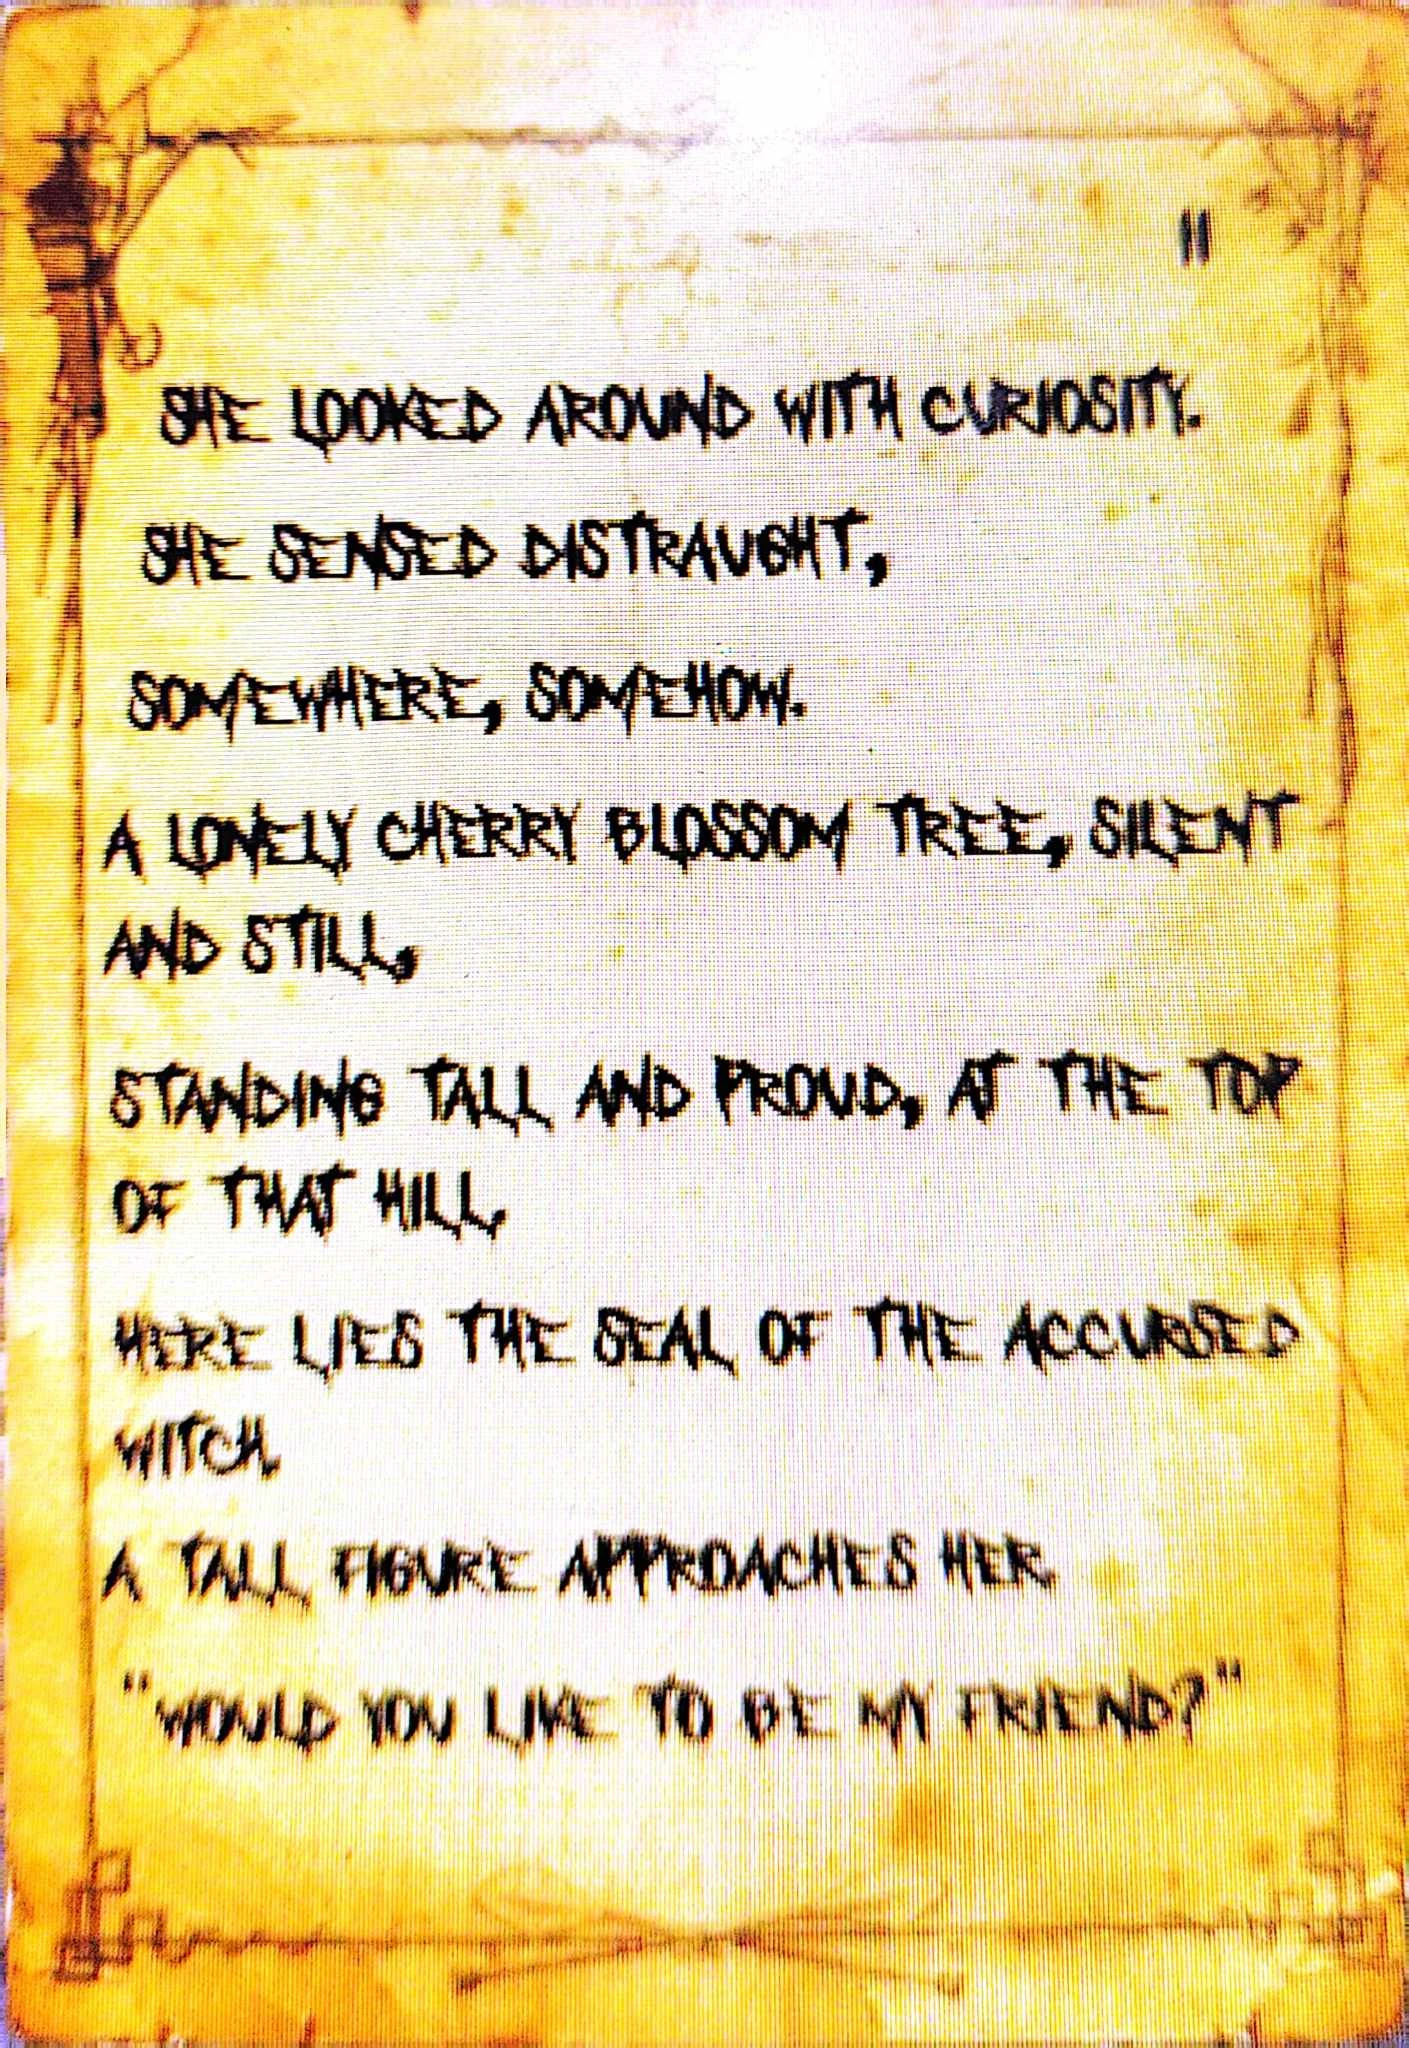 "
SHE LOOKED AROUND WITH CURIOSITY.
SHE SENSED DISTRAUGHT,
SOMEWHERE, SOMEHOW.
A LONELY CHERRY BLOSSOM TREE, SILENT
AND STILL,
STANDING TALL AND PROUD, AT THE TOP
OF THAT HILL,
HERE LIES THE SEAL OF THE ACCURSED
WITCH.
A TALL FIGURE APPROACHES HER.
"WOULD YOU LIKE TO BE MY FRIEND?"